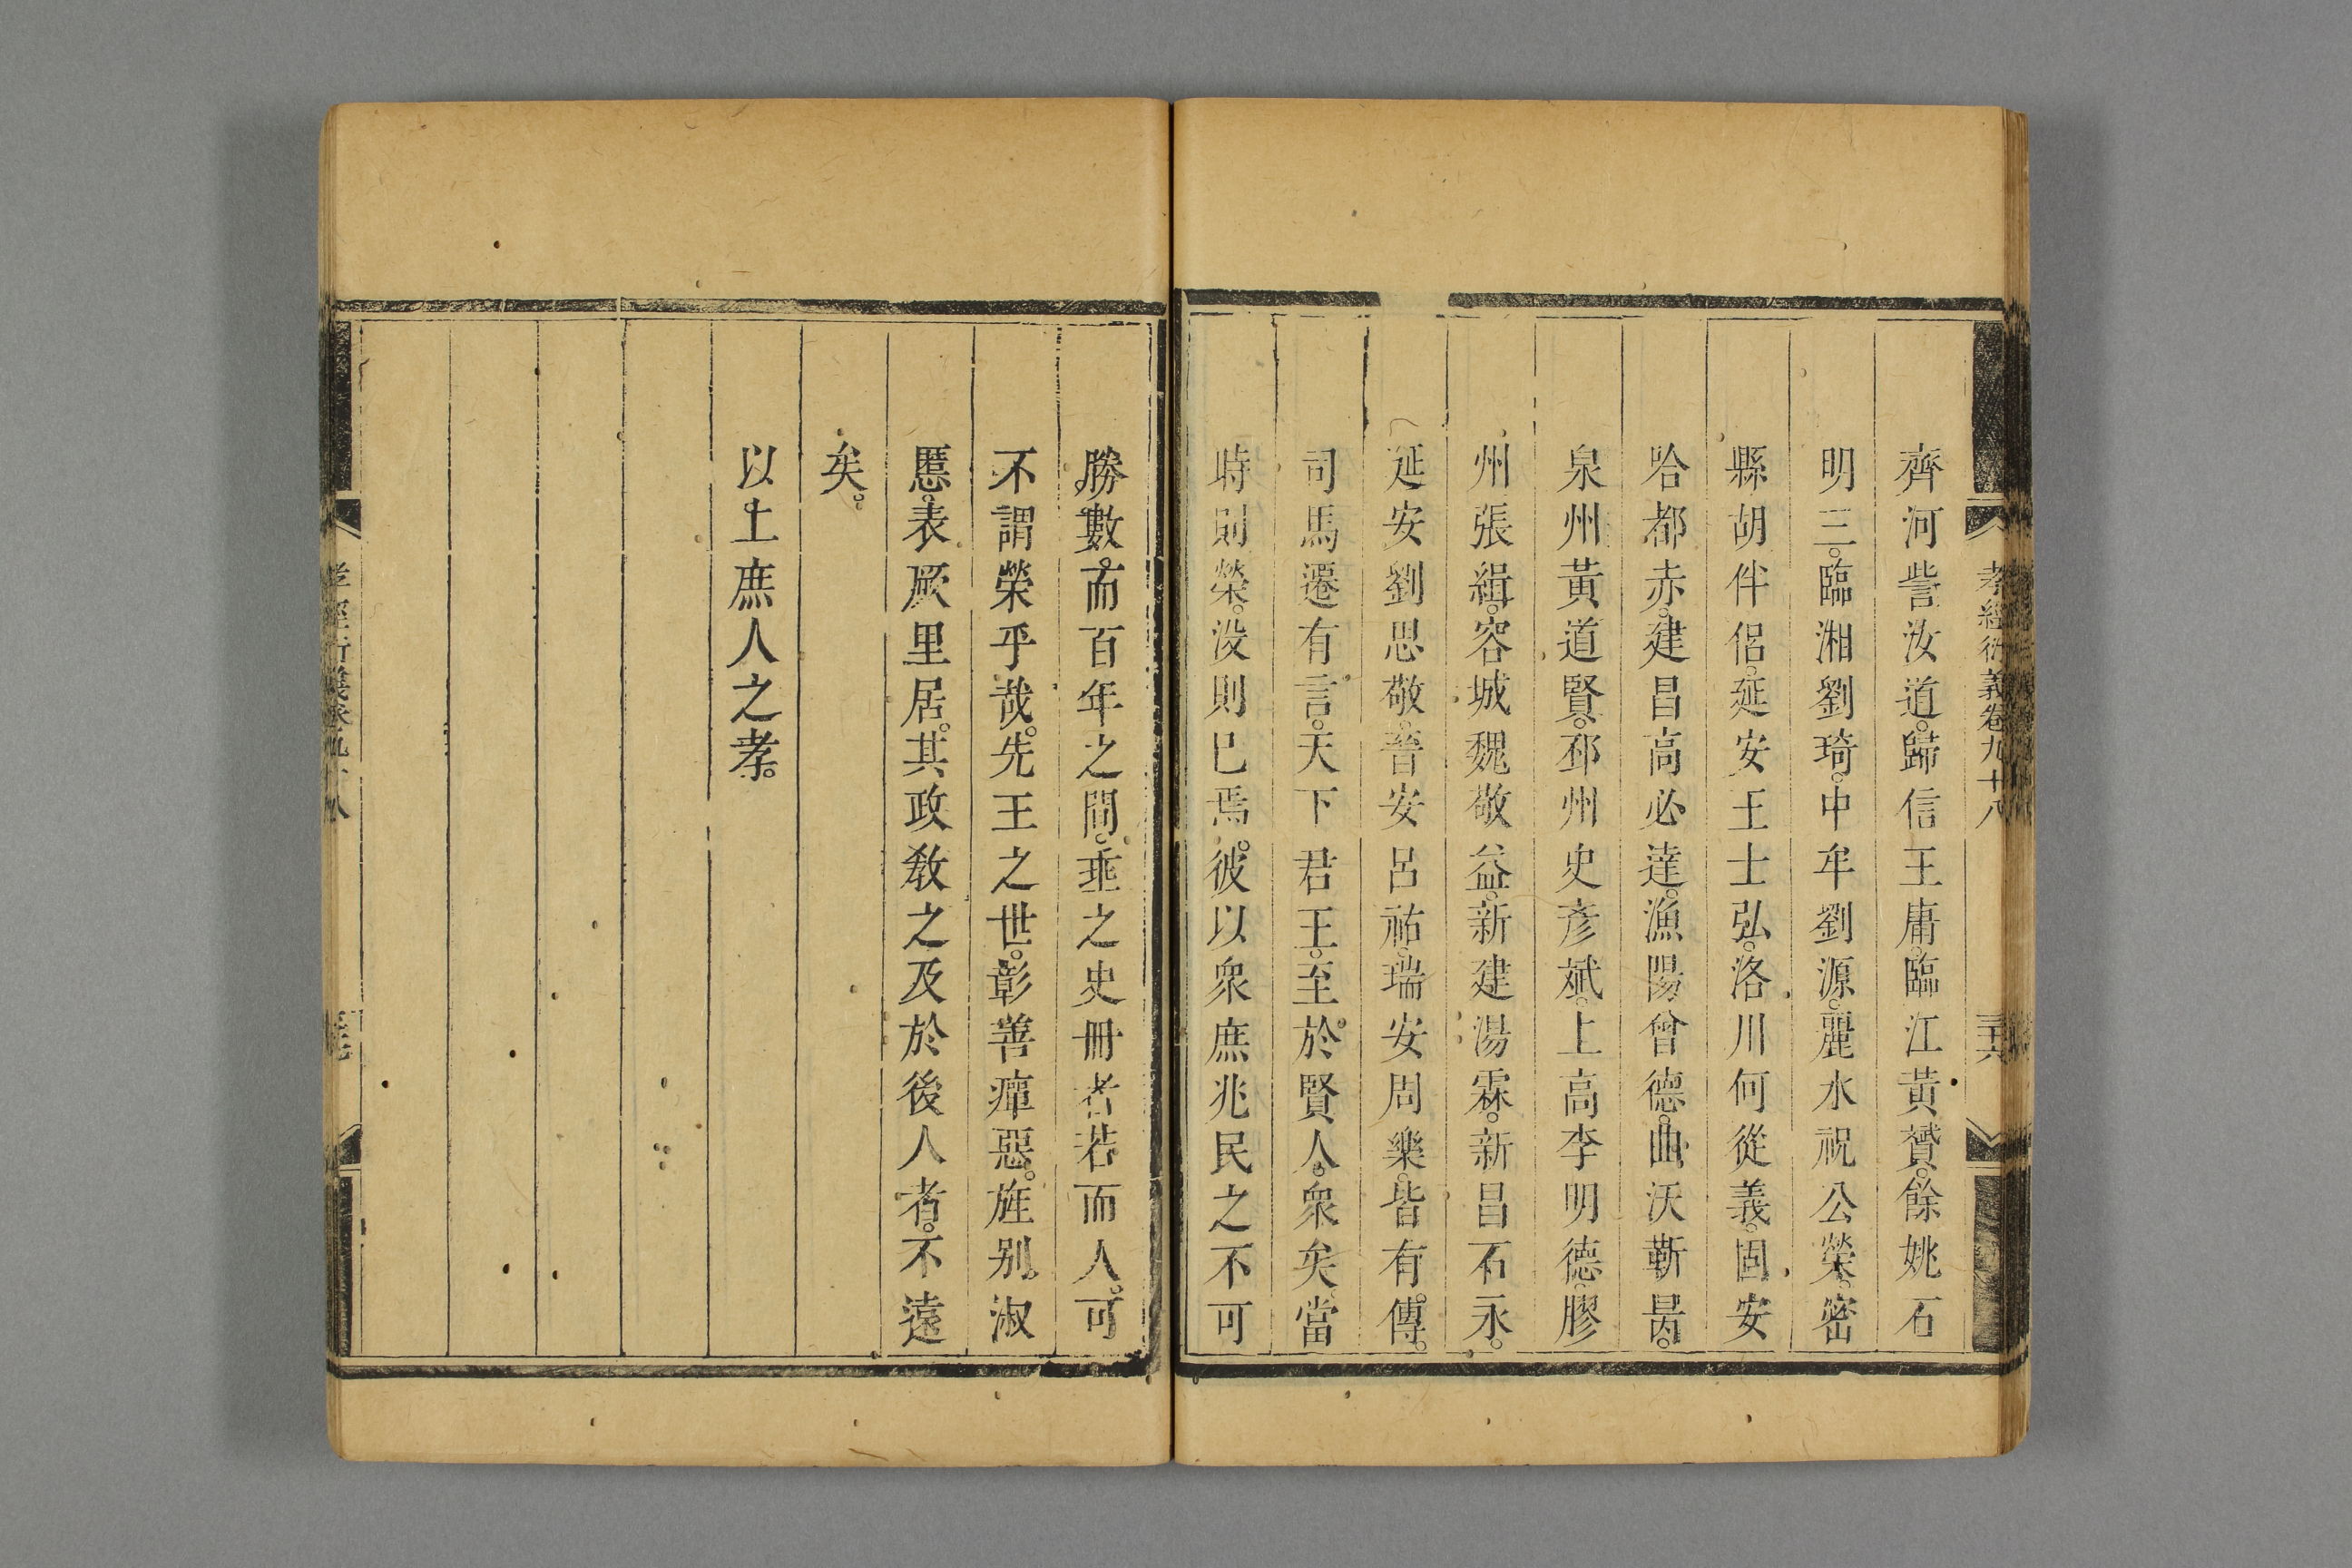 孝經衍義卷九十八
齊河訾汝道。歸信王庸。臨江黃贇。餘姚石
明三。臨湘劉琦。中牟劉源。麗水祝公榮。密
縣胡伴侶。延安王士弘。洛川何從義。固安
哈都赤。建昌高必達。漁陽曾德。曲沃靳昺。
泉州黃道賢。邳州史彦斌。上高李明德。膠
州張緝。容城魏敬益。新建湯霖。新昌石永。
延安劉思敬。晉安呂祐。瑞安周樂。皆有傳。
司馬遷有言。天下君王。至於賢人。衆矣。當
時則榮。沒則已焉。彼以衆庶兆民之不可
勝數。而百年之間。垂之史冊者。若而人。可
不謂榮乎哉。先王之世。彰善癉惡。旌别淑
慝。表厥里居。其政敎之及於後人者。不遠
矣。
以上庶人之孝。